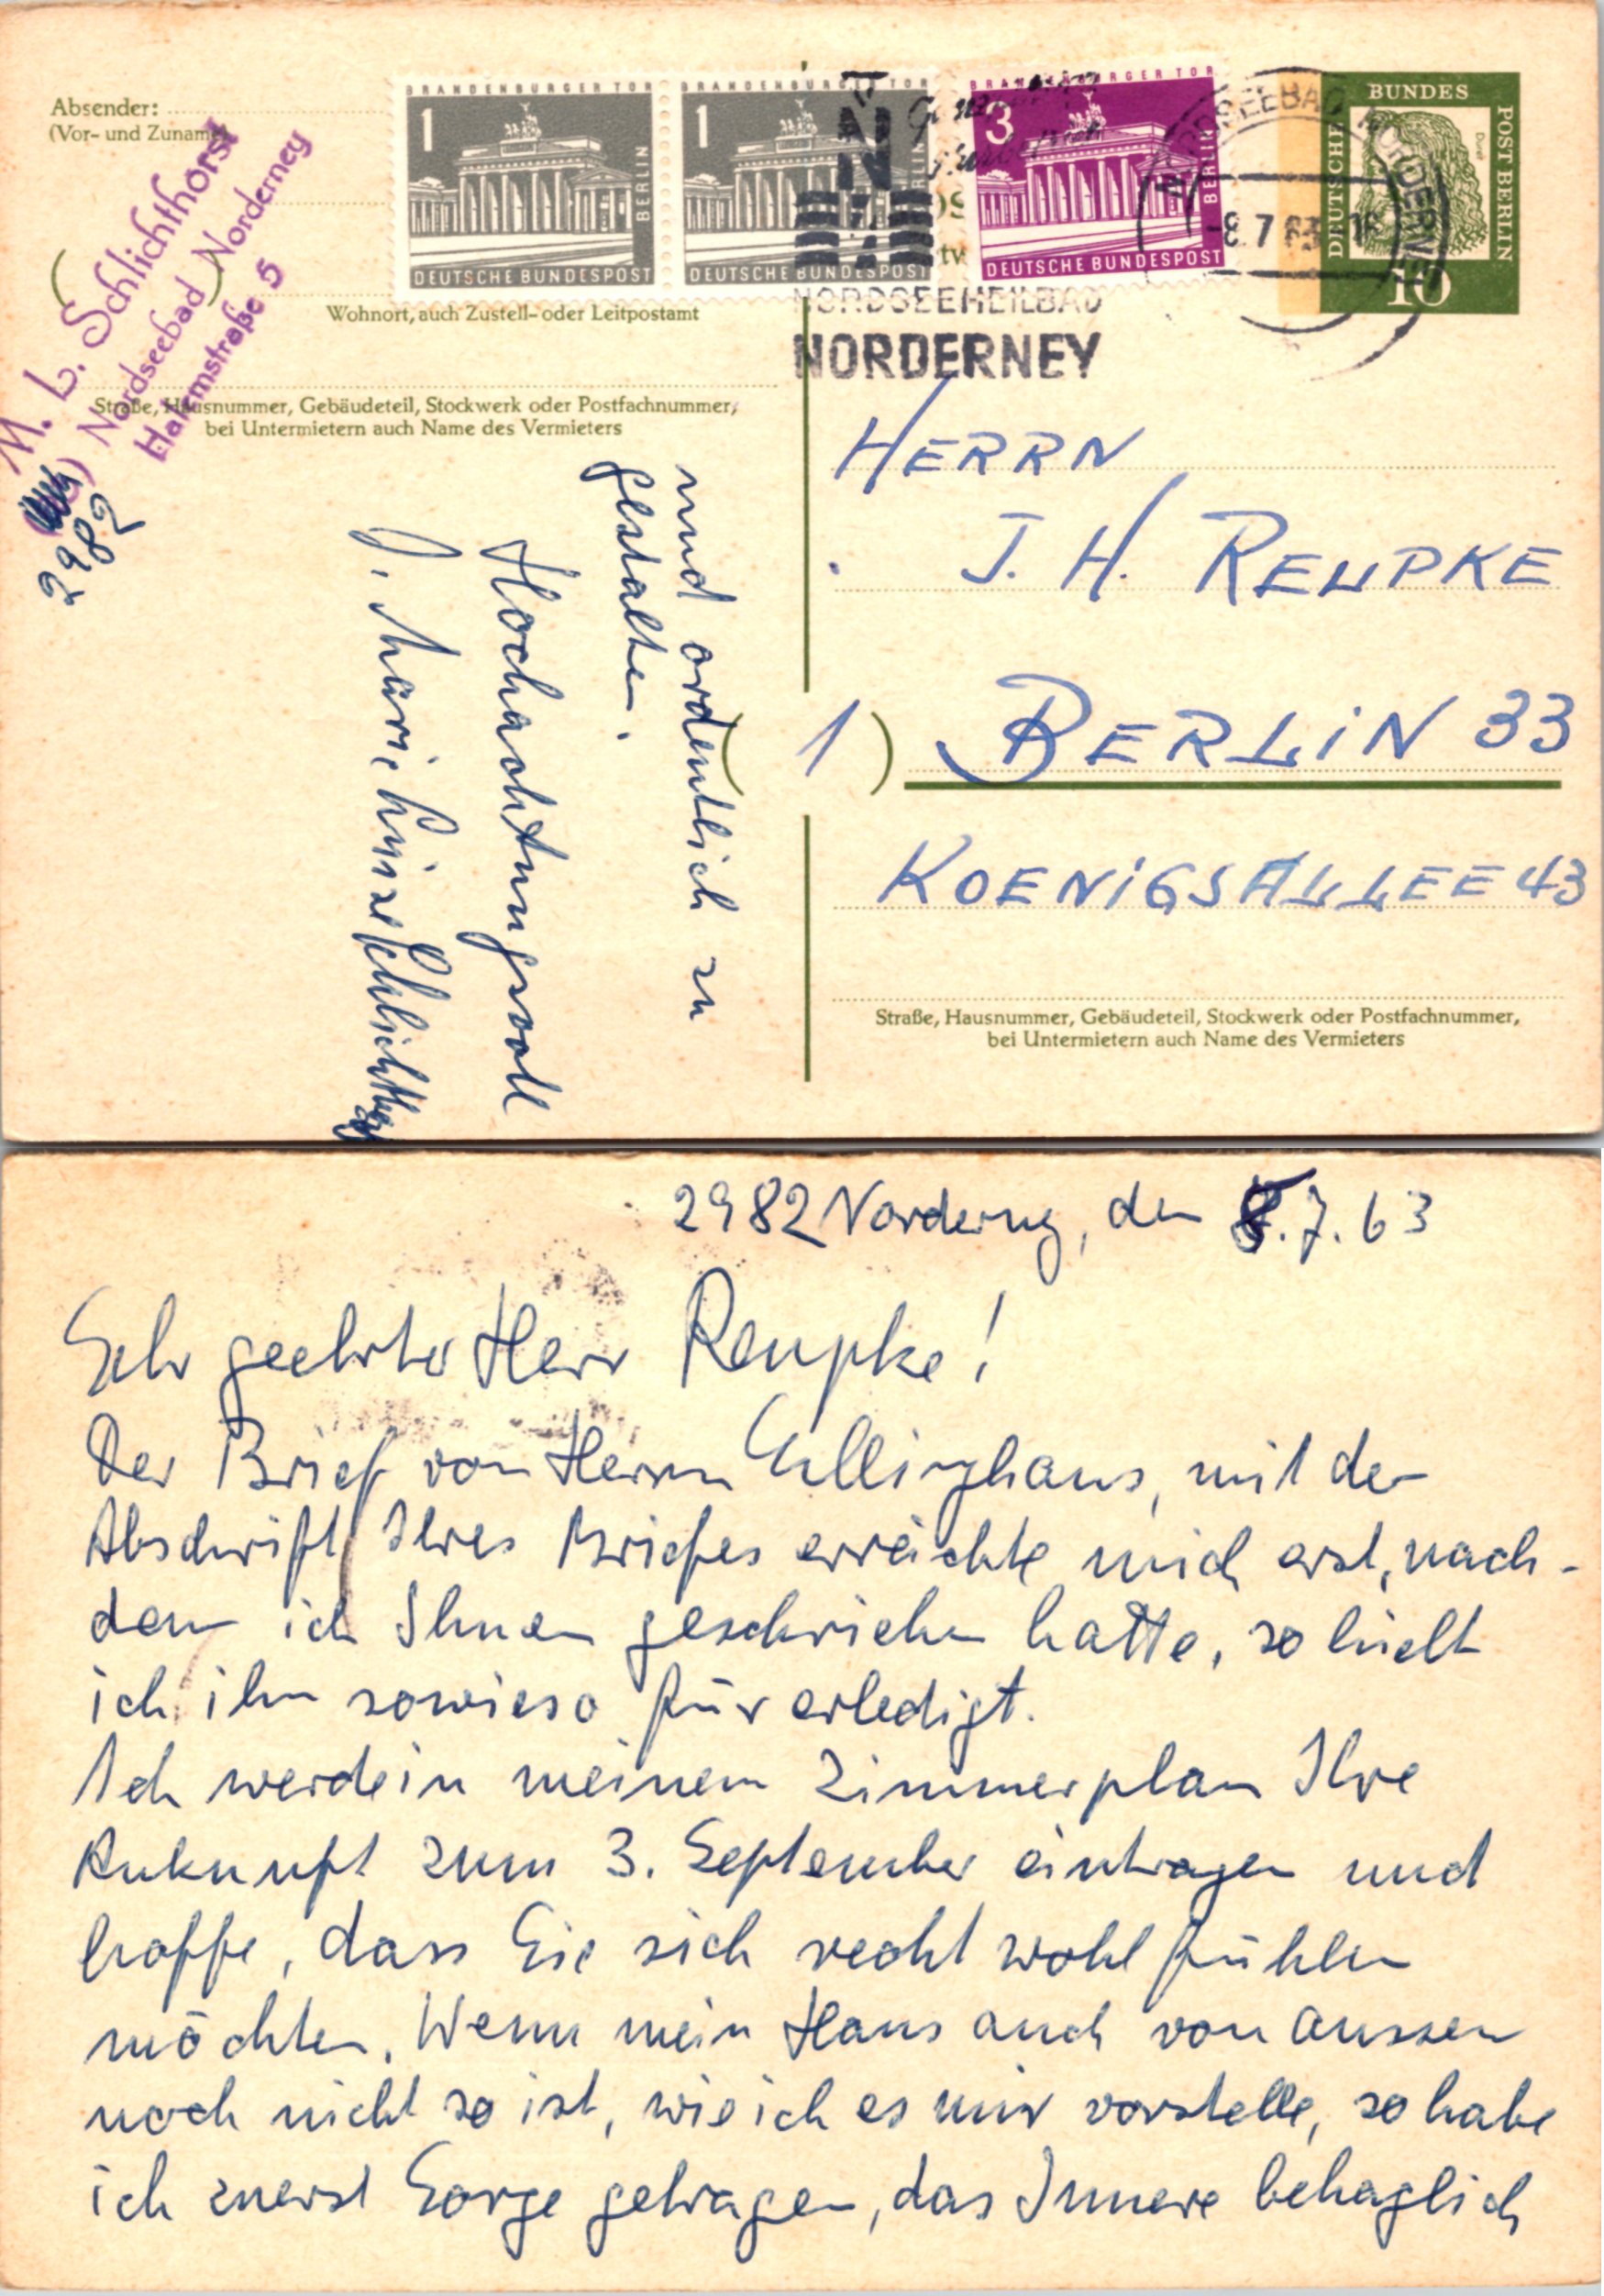 Absender:
(Vor- und Zuname)
M. L. Schlichthorst
Nordseebad Norderney
Halemstraße 5
2982
Wohnort, auch Zustell- oder Leitpostamt
Straße, Hausnummer, Gebäudeteil, Stockwerk oder Postfachnummer,
bei Untermietern auch Name des Vermieters
BRANDENBURGER TOR
1
BERLIN
DEUTSCHE BUNDESPOST
BRANDENBURGER TOR
1
BERLIN
DEUTSCHE BUNDESPOST
BRANDENBURGER TOR
3
BERLIN
DEUTSCHE BUNDESPOST
N
NORDSEEHEILBAD
NORDERNEY
NORDSEEBAD NORDERNEY
-8.7.63-16
DEUTSCHE BUNDESPOST BERLIN
10
HERRN
J. H. REUPKE
1) BERLIN 33
KOENIGSALLEE 43
Straße, Hausnummer, Gebäudeteil, Stockwerk oder Postfachnummer,
bei Untermietern auch Name des Vermieters
und ordentlich zu
gestalten.
Hochachtungsvoll
Marie Luise Schlichthorst
2982 Norderney, den 8.7.63
Sehr geehrter Herr Reupke!
Der Brief von Herrn Ellinghaus, mit der
Abschrift Ihres Briefes erreichte mich erst, nach-
dem ich Ihnen geschrieben hatte, so hielt
ich ihn sowieso für erledigt.
Ich werde in meinem Zimmerplan Ihre
Ankunft zum 3. September eintragen und
hoffe, dass Sie sich recht wohl fühlen
möchten. Wenn mein Haus auch von aussen
noch nicht so ist, wie ich es mir vorstelle, so habe
ich zuerst Sorge getragen, das Innere behaglich